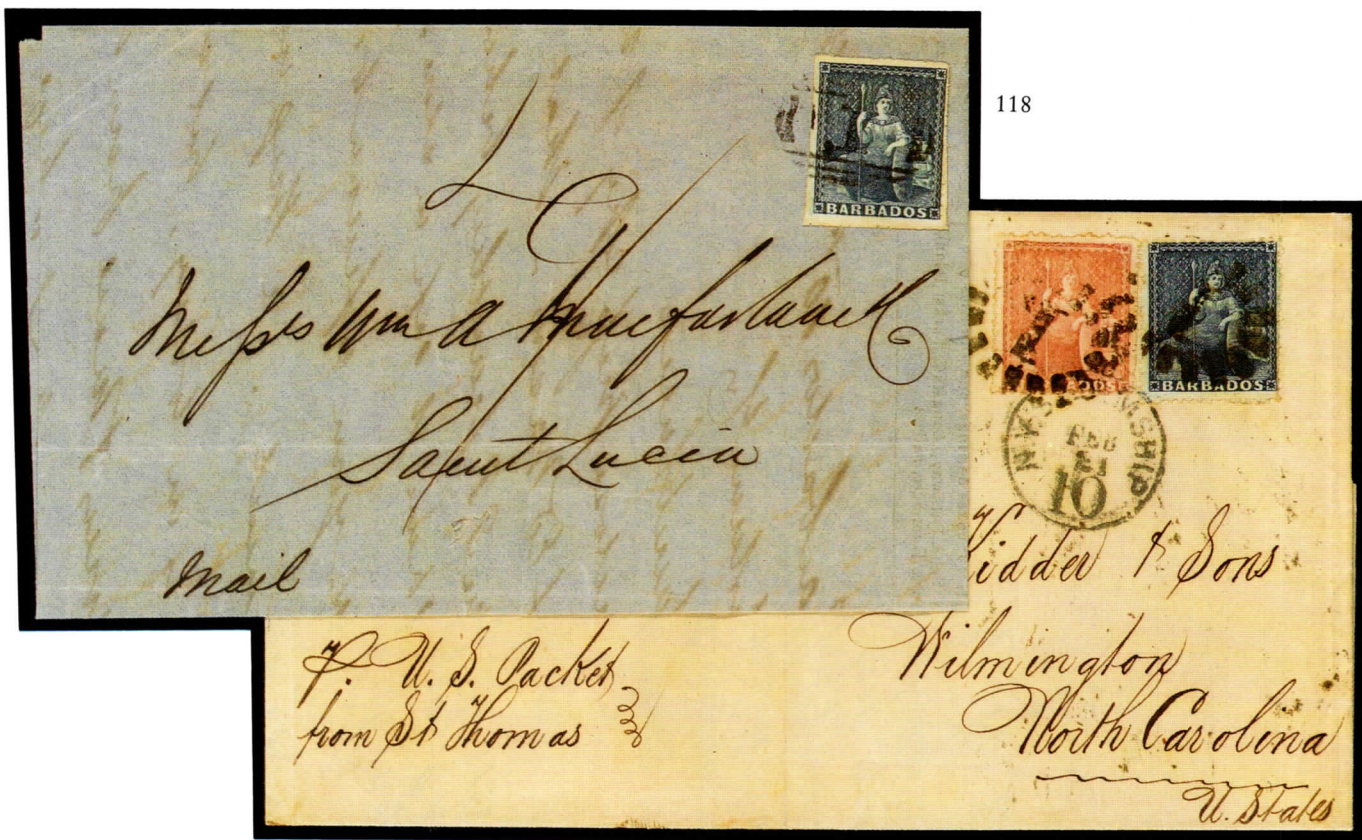 118
BARBADOS
Mess's Wm A Macfarlane
Saint Lucia
Mail
BARBADOS
N.Y. STEAMSHIP
FEB
21
10
Kidder & Sons
Wilmington
North Carolina
U. States
P. U. S. Packet
from St Thomas